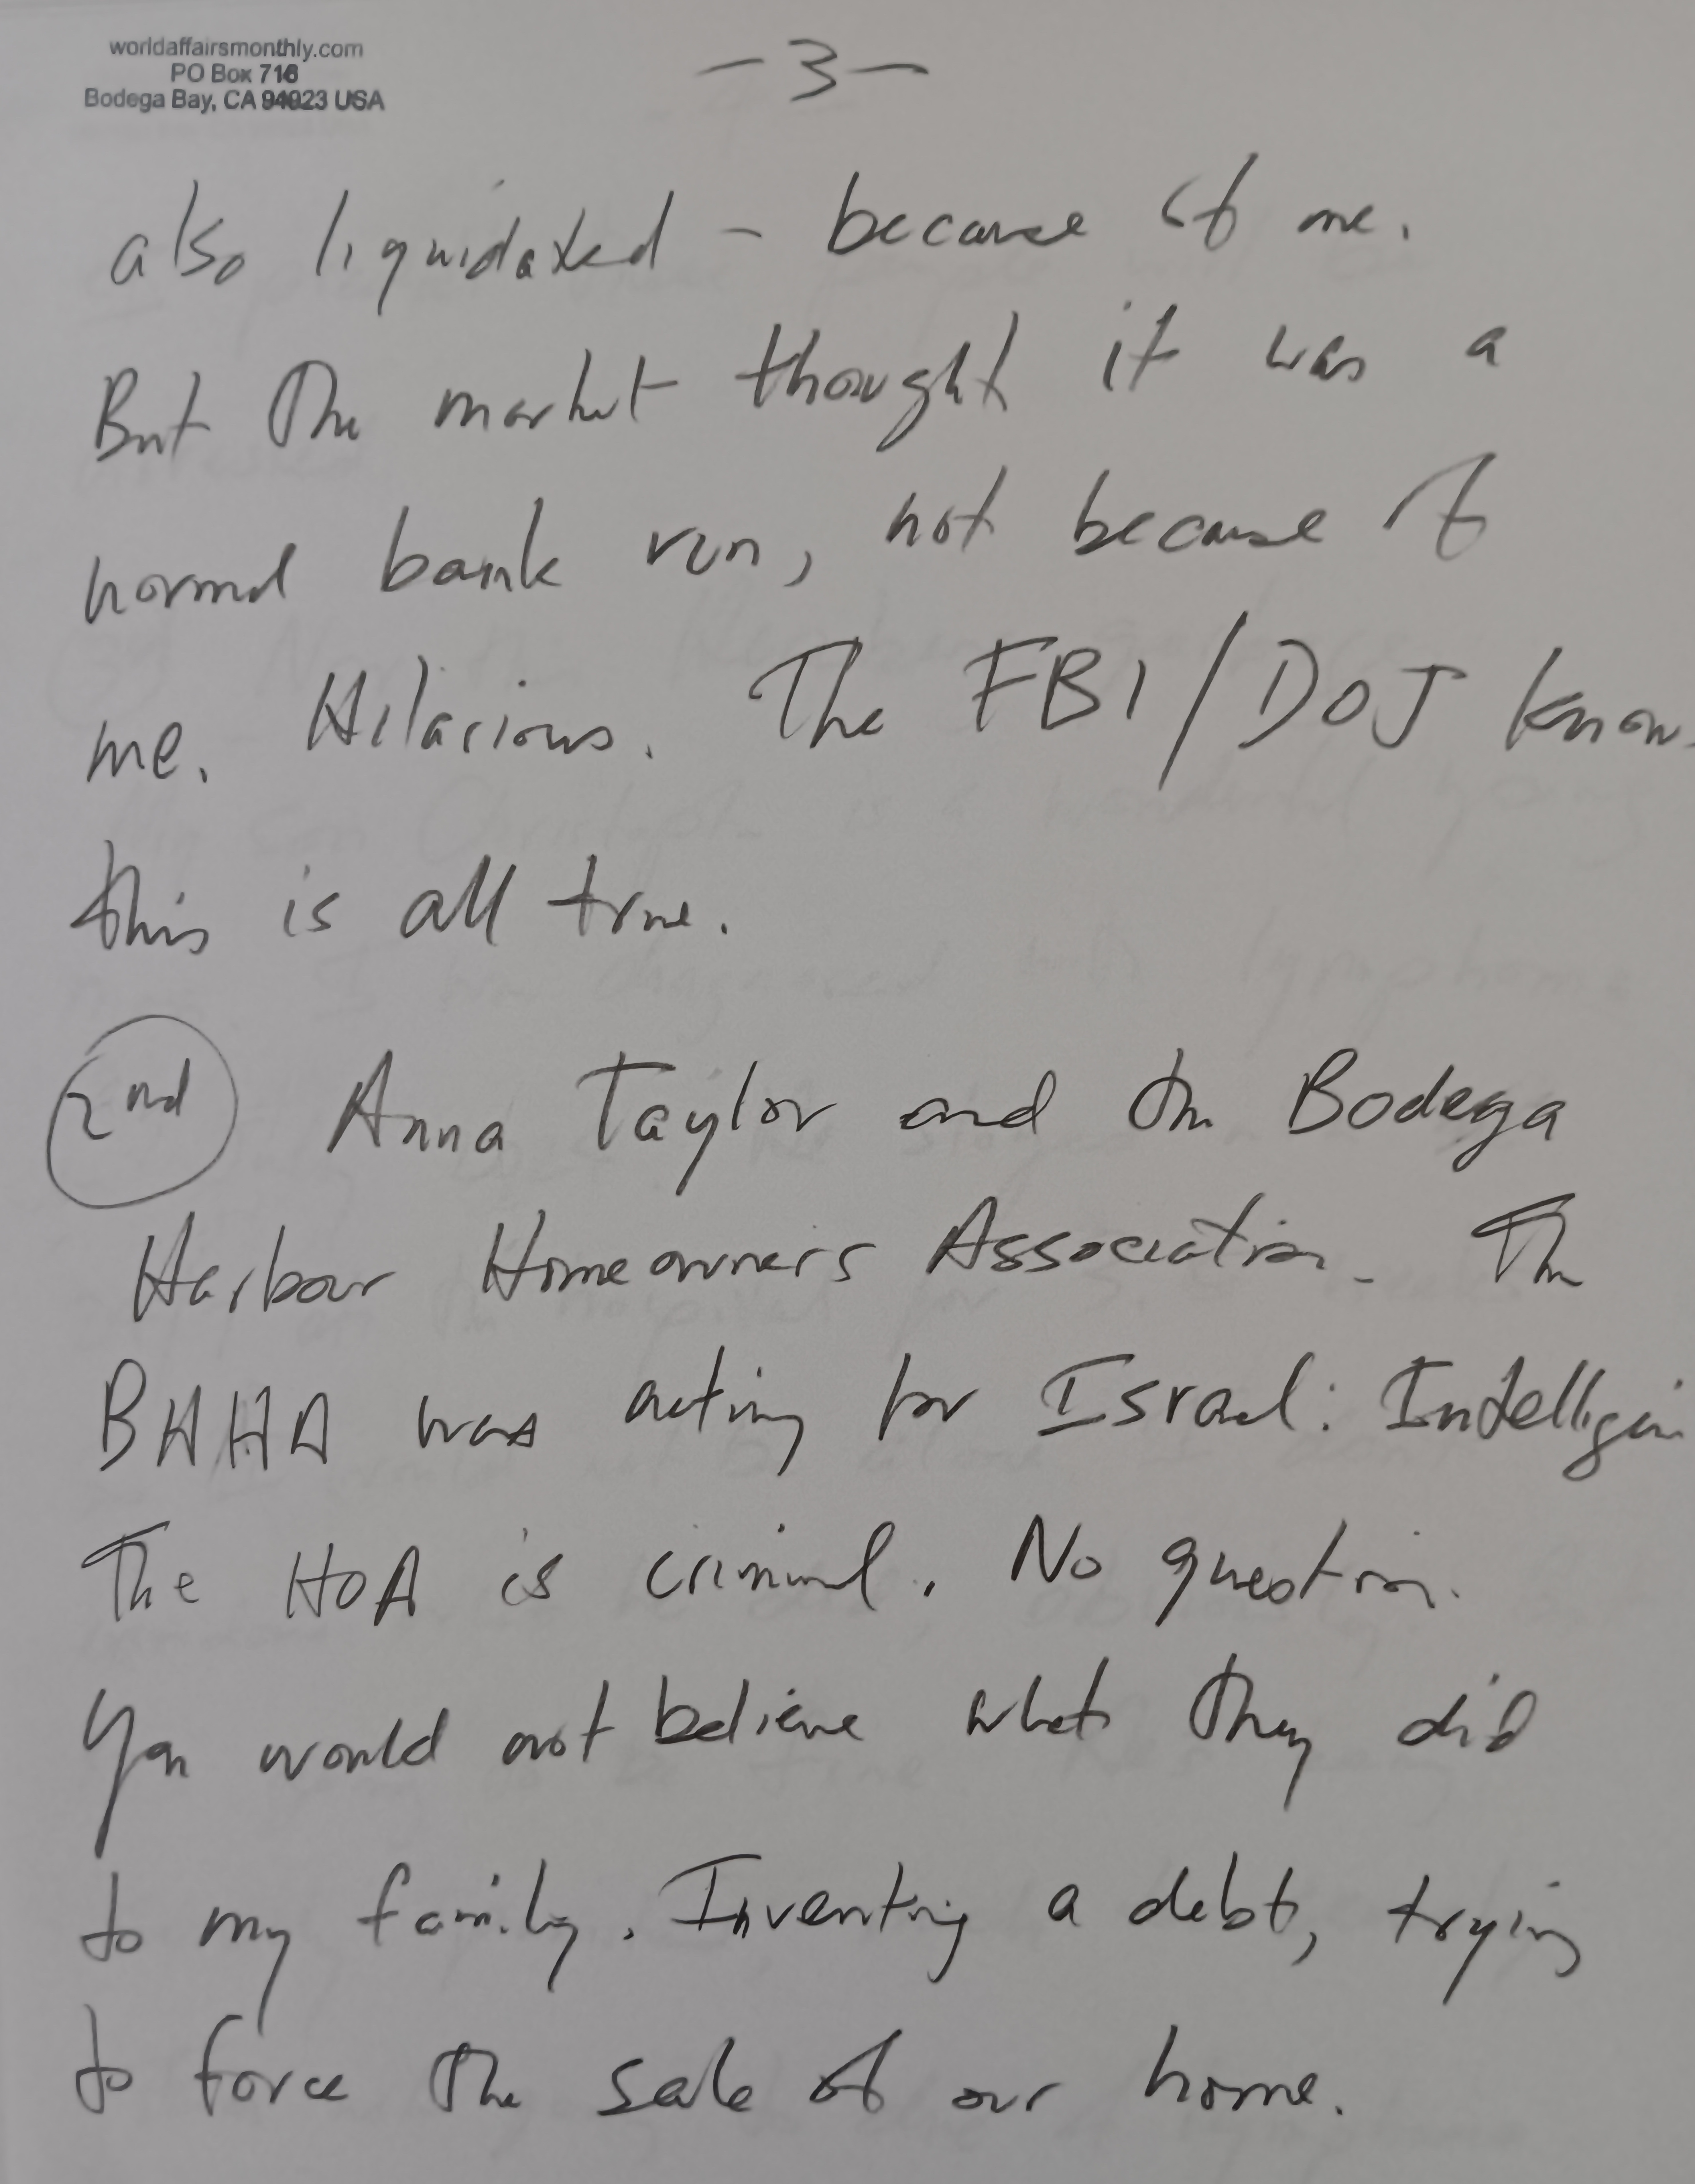 worldaffairsmonthly.com
PO Box 716
Bodega Bay, CA 94923 USA
-3-
also liquidated - because of me.
But the market thought it was a
normal bank run, not because of
me. Hilarious. The FBI/DOJ know
this is all true.
2nd Anna Taylor and the Bodega
Harbour Homeowners Association. The
BHHA was acting for Israel: Intelligen
The HOA is criminal. No question.
You would not believe what they did
to my family. Inventing a debt, trying
to force the sale of our home.